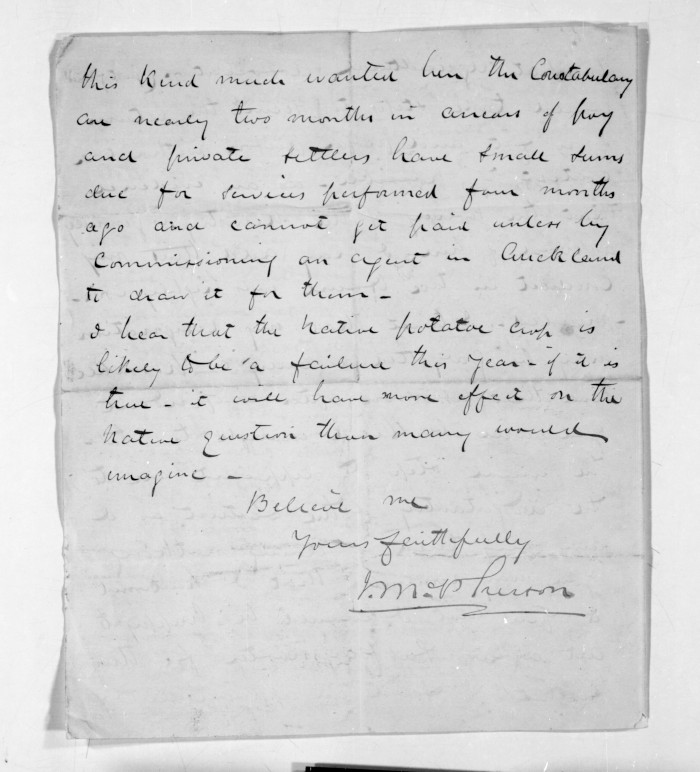 this kind much wanted here the Constabulary
are nearly two months in arrears of pay
and private settlers have small sums
due for services performed four months
ago and cannot get paid unless by
Commissioning an agent in Auckland
to draw it for them -
I hear that the Native potatoe crop is
likely to be a failure this year - if it is
true - it will have more effect on the
Native question than many would
imagine -
Believe me
Yours faithfully
J. McPherson